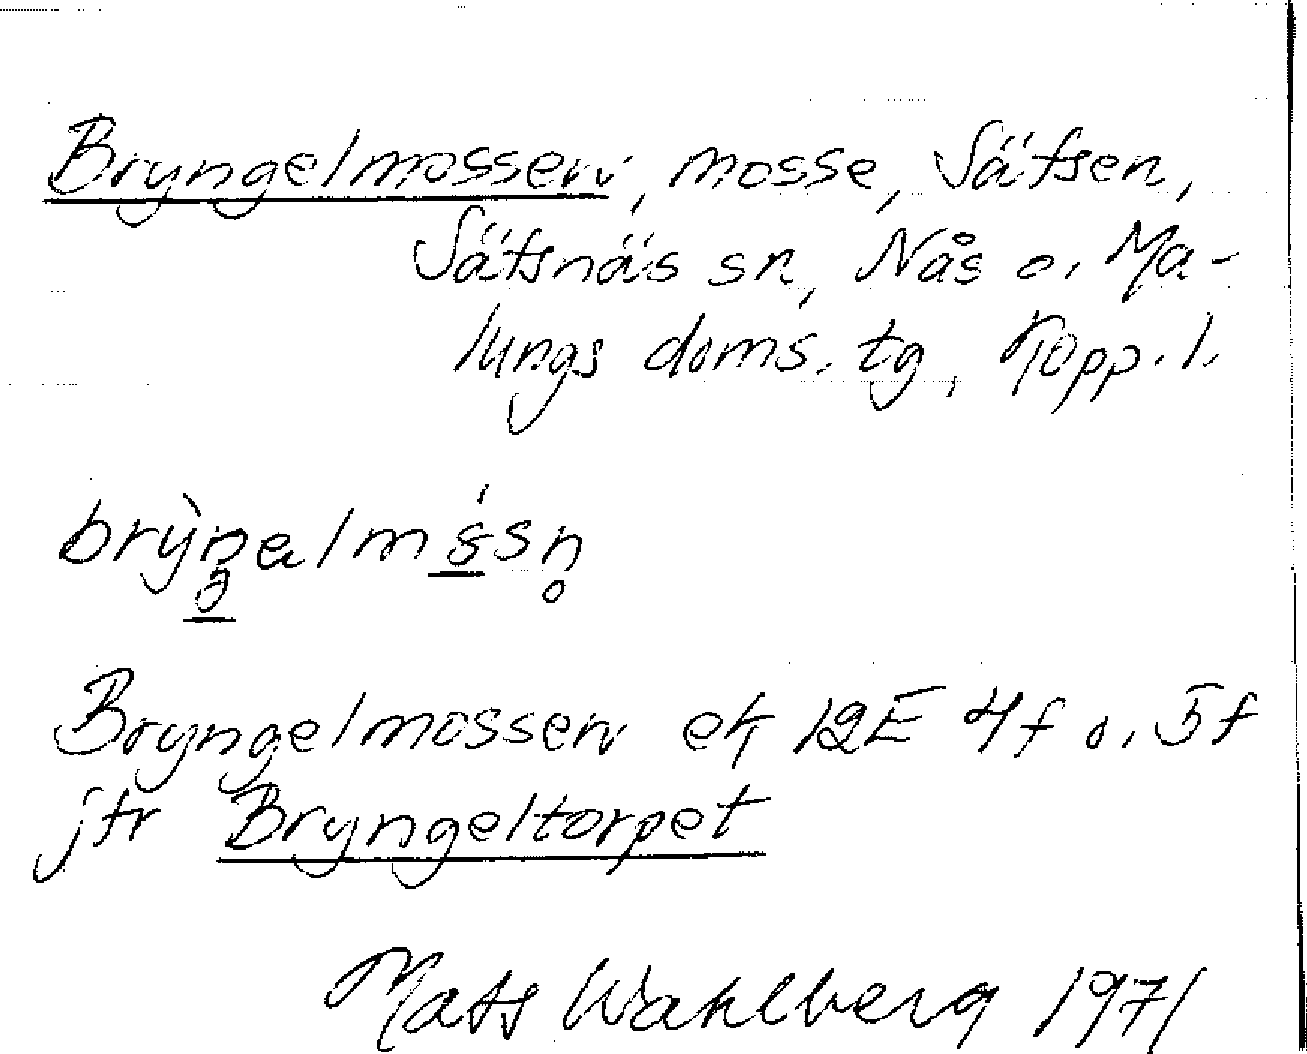 Bryngelmossen, mosse, Säfsen,
Säfsnäs sn, Nås o. Ma-
lungs doms. tg, Kopp. l.
Bryngelmossen ek 12E 4f o. 5f
jfr Bryngeltorpet
Mats Wahlberg 1971